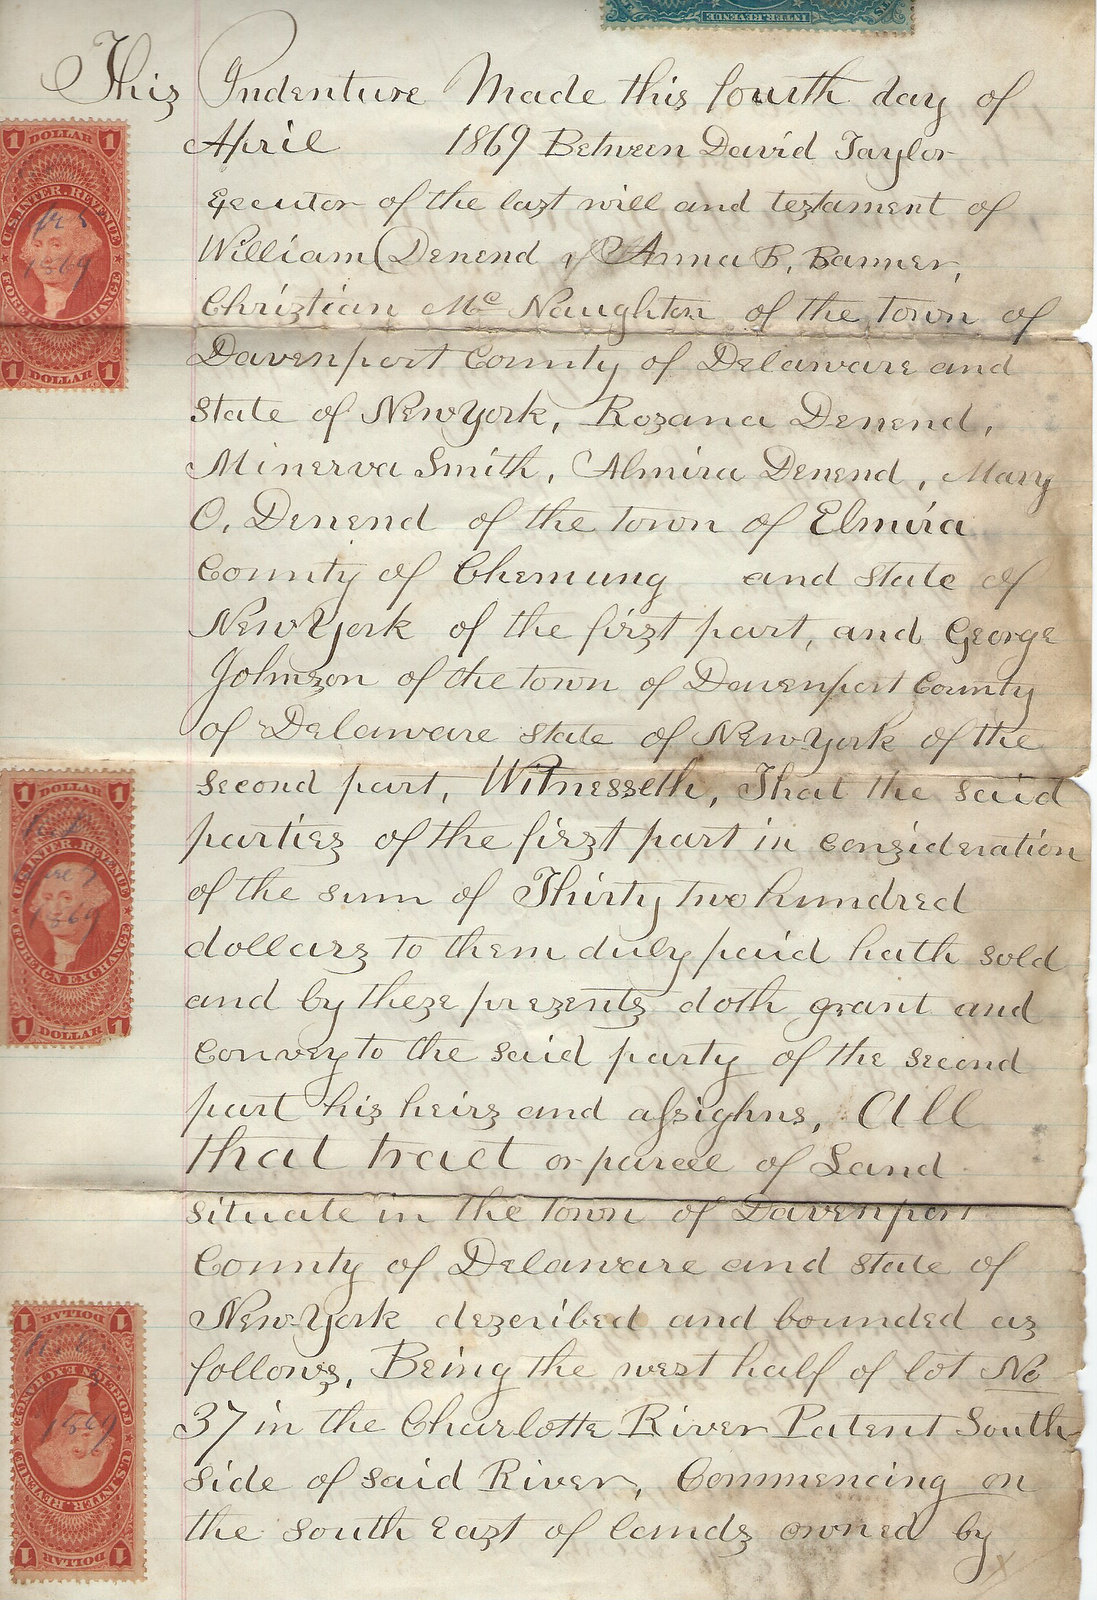 INTER. REVENUE
This Indenture Made this fourth day of
April 1869 Between David Taylor
Executor of the last will and testament of
William Denend & Anna B. Banner,
Christian Mc Naughton of the town of
Davenport County of Delaware and
State of New York, Rozana Denend,
Minerva Smith, Almira Denend, Mary
O. Denend of the town of Elmira
County of Chemung and State of
New York of the first part, and George
Johnson of the town of Davenport County
of Delaware State of New York of the
second part, Witnesseth, That the said
parties of the first part in consideration
of the sum of Thirty two hundred
dollars to them duly paid hath sold
and by these presents doth grant and
convey to the said party of the second
part his heirs and assighns, All
that tract or parcel of Land
situate in the town of Davenport
County of Delaware and State of
New York described and bounded as
follows, Being the west half of lot No
37 in the Charlotte River Patent South
side of said River, Commencing on
the south east of lands owned by
1 DOLLAR 1
U.S. INTER. REVENUE
1869
FOREIGN EXCHANGE
1 DOLLAR 1
1 DOLLAR 1
U.S. INTER. REVENUE
1869
FOREIGN EXCHANGE
1 DOLLAR 1
1 DOLLAR 1
FOREIGN EXCHANGE
1869
U.S. INTER. REVENUE
1 DOLLAR 1